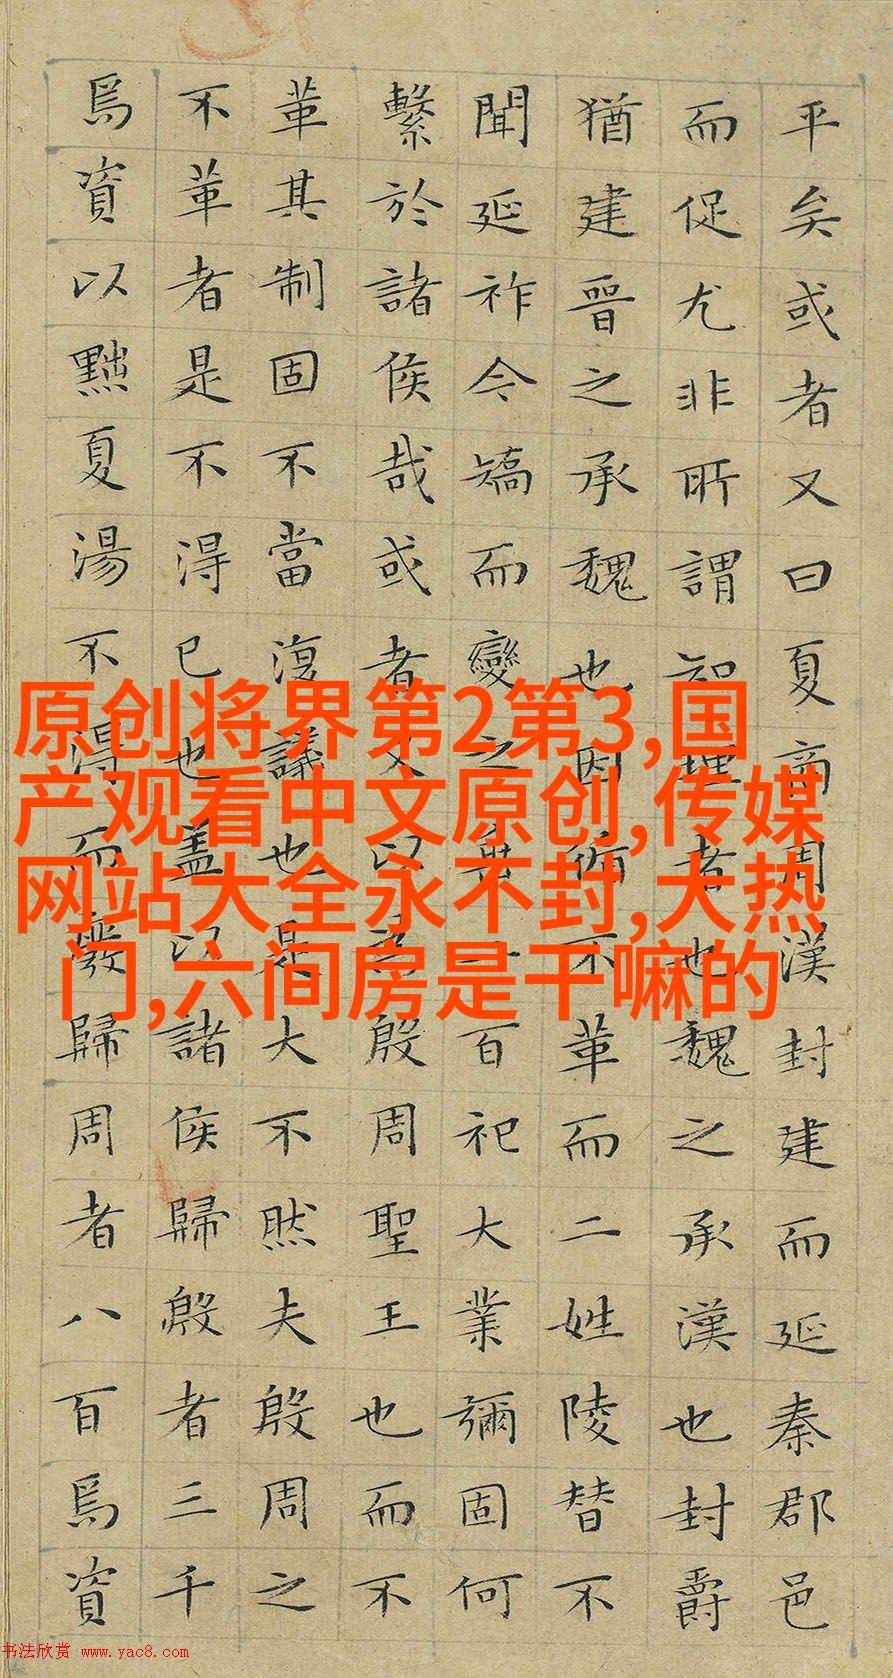 平矣或者又曰夏商周漢封建而延秦郡邑
而促尤非所謂知理者也魏之承漢也封爵
猶建晉之承魏也因循不革而二姓陵替不
聞延祚今矯而變之垂二百祀大業彌固何
繫於諸侯哉或者又以為殷周聖王也而不
革其制固不當復議也是大不然夫殷周之
不革者是不得已也盖以諸侯歸殷者三千
焉資以黜夏湯不得而廢歸周者八百焉資
原创将界第2第3,国
产观看中文原创,传媒
网站大全永不封,大热
门,六间房是干嘛的
书法欣赏 www.yac8.com